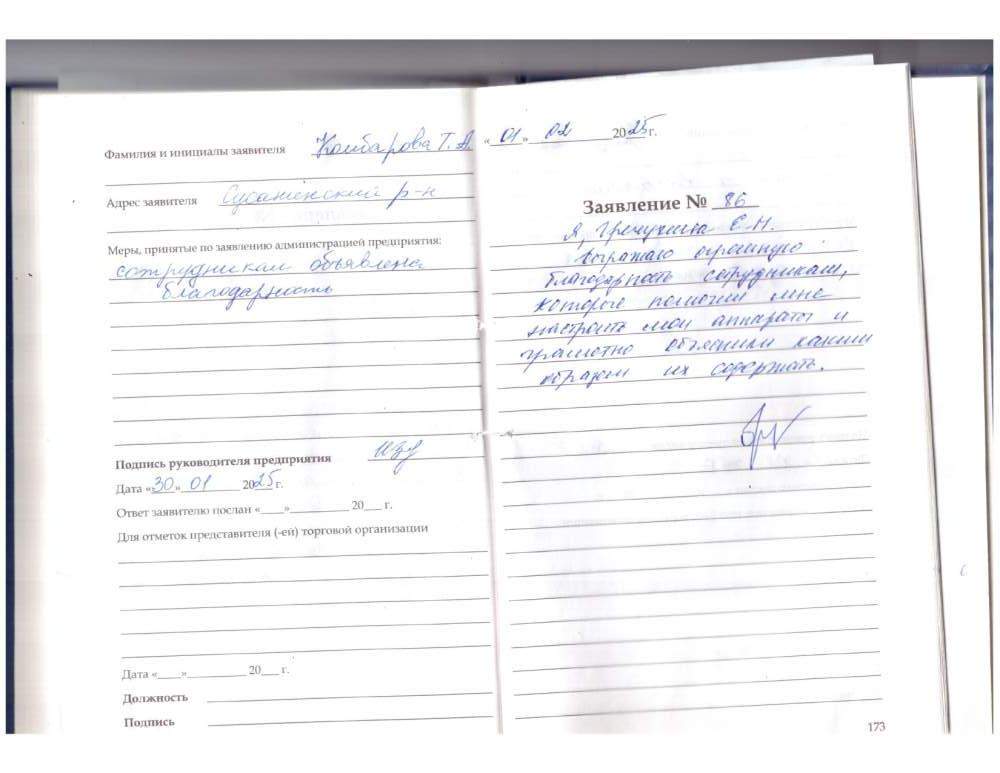 Фамилия и инициалы заявителя Комбарова Т. А.
Адрес заявителя Сусанинский р-н
Меры, принятые по заявлению администрацией предприятия:
сотрудникам объявлена
благодарность
Подпись руководителя предприятия
Дата «30» 01 2025 г.
Ответ заявителю послан «____»__________ 20___ г.
Для отметок представителя (-ей) торговой организации
Дата «____»__________ 20___ г.
Должность
Подпись
«01» 02 2025г.
Заявление № 86
Я, Гречухина Е.Н.
выражаю огромную
благодарность сотрудникам,
которые помогли мне
настроить мои аппараты и
грамотно объяснили каким
образом их содержать.
173